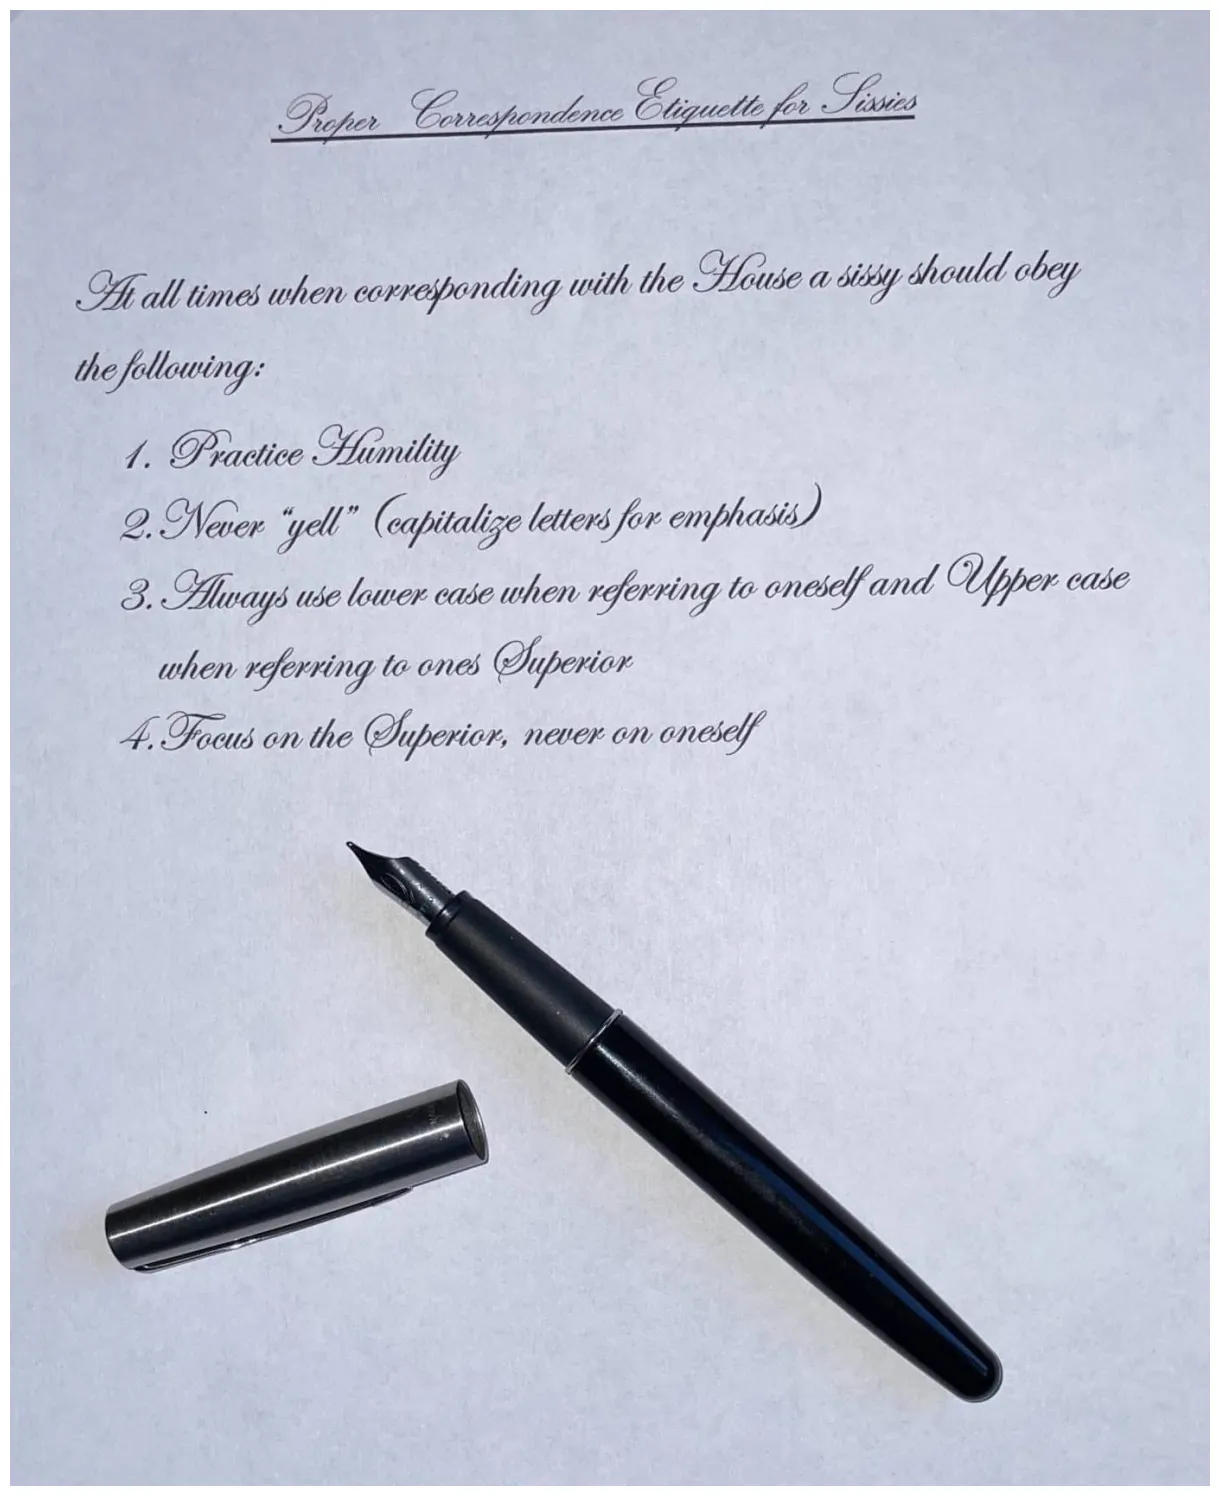 Proper Correspondence Etiquette for Sissies
At all times when corresponding with the House a sissy should obey
the following:
1. Practice Humility
2. Never “yell” (capitalize letters for emphasis)
3. Always use lower case when referring to oneself and Upper case
when referring to ones Superior
4. Focus on the Superior, never on oneself